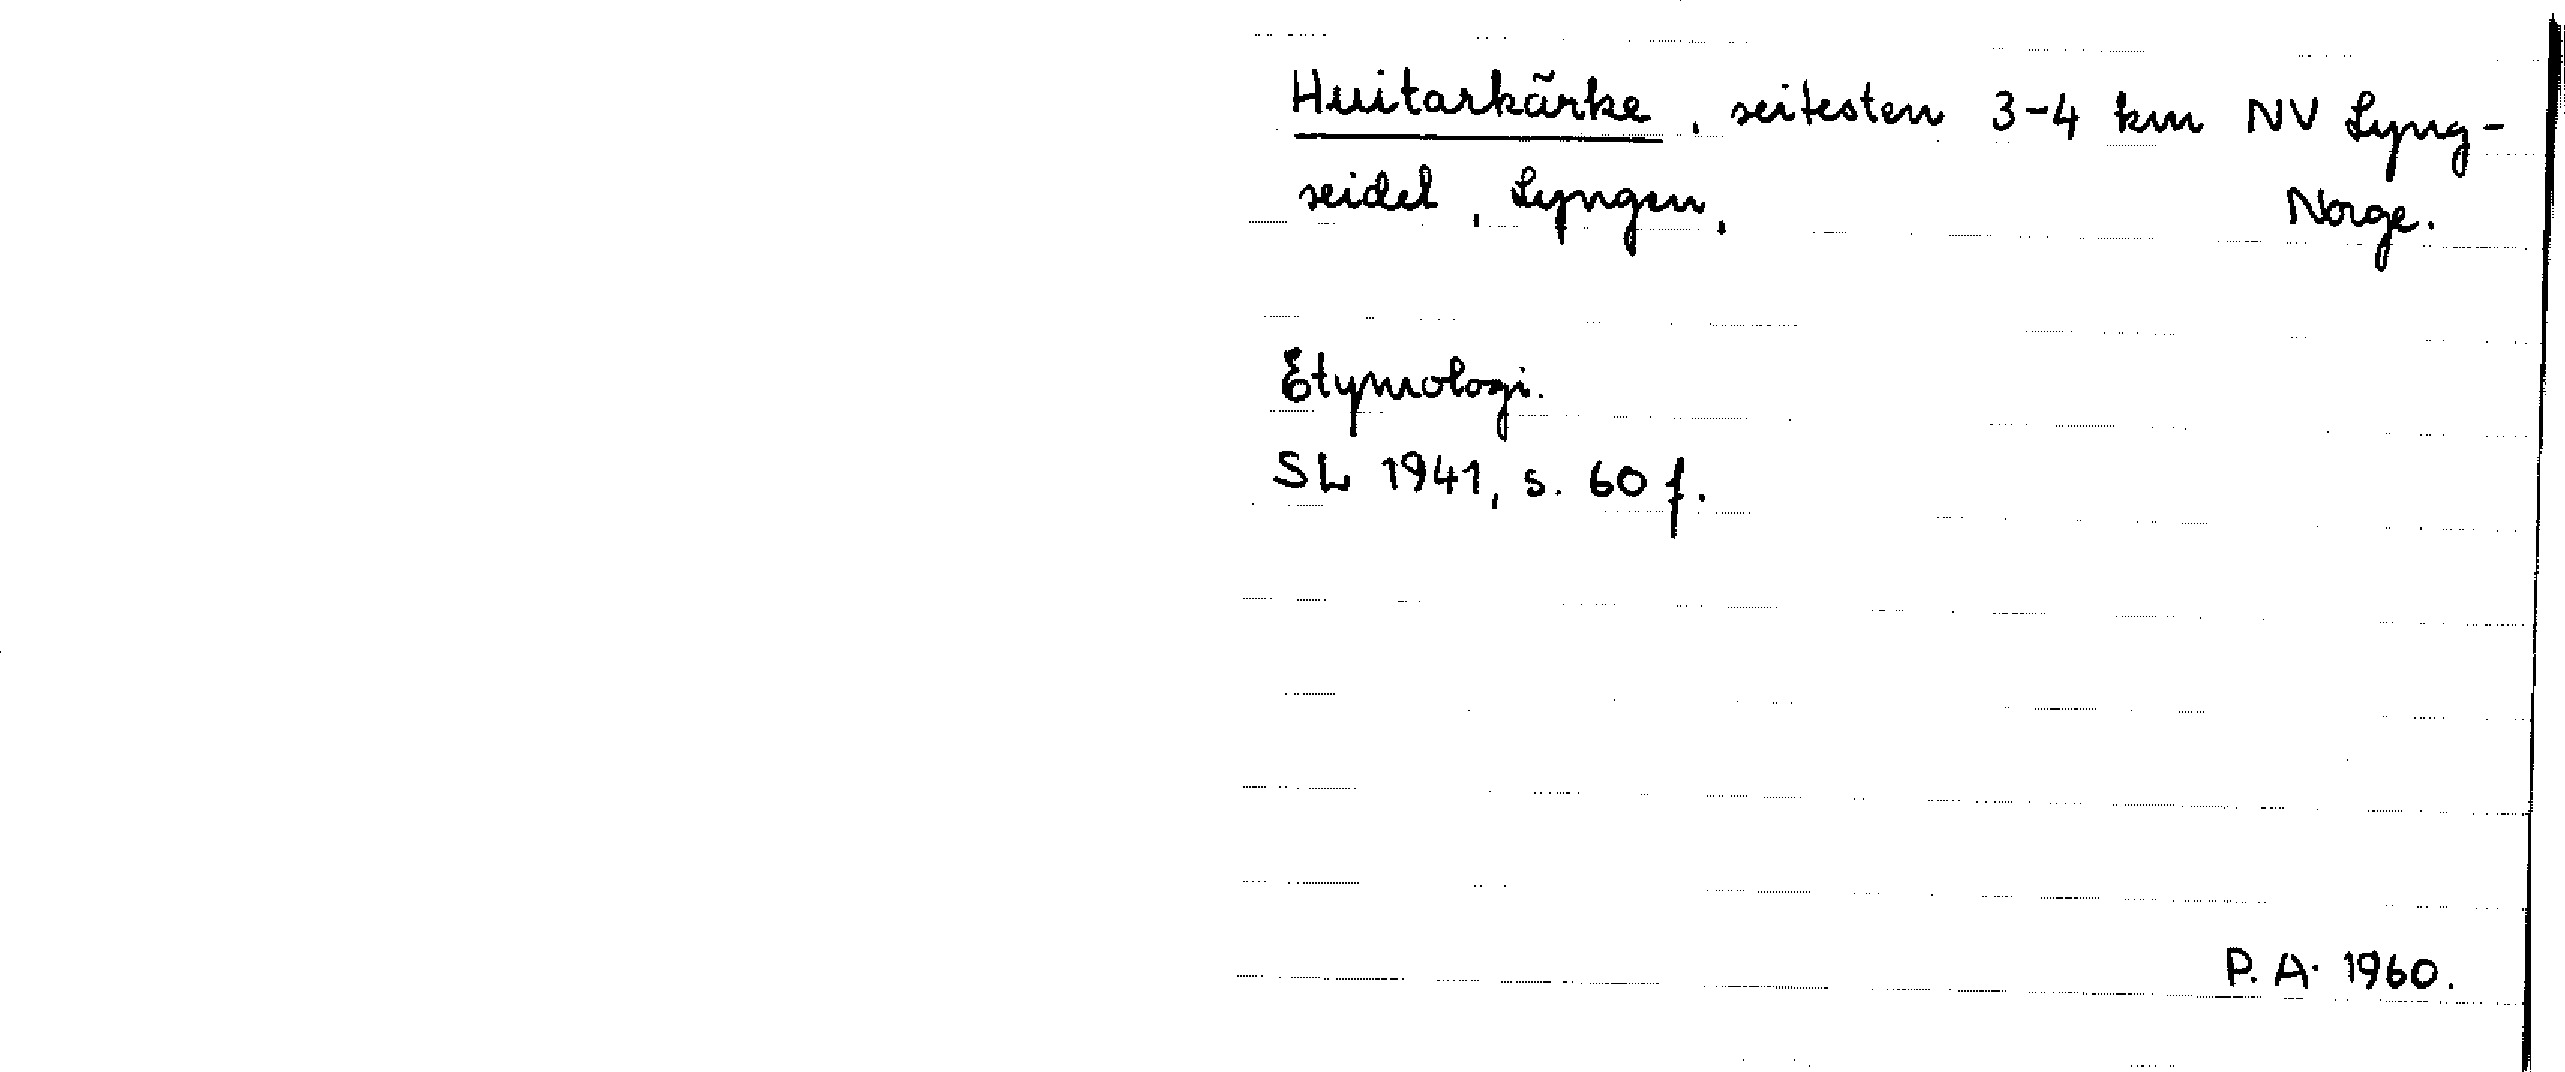 Huitarkärke, seitesten 3-4 km NV Lyng-
seidet, Lyngen, Norge.
Etymologi.
SL 1941, s. 60 f.
P. A. 1960.